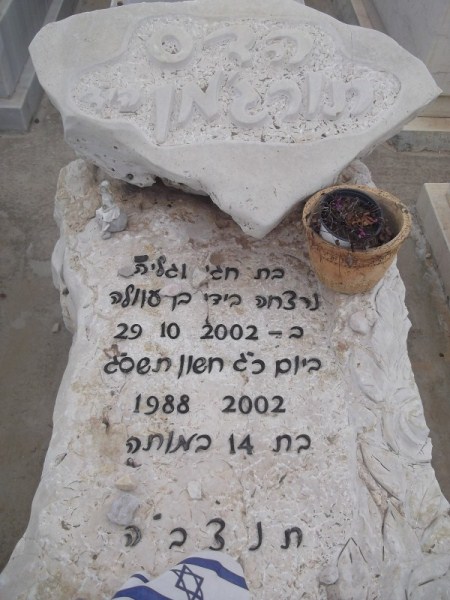 הדס
תורג'מן הי"ד
בת חגי וגליה
נרצחה בידי בן עוולה
ב - 29 10 2002
ביום כ"ג חשון תשס"ג
1988 2002
בת 14 במותה
ת נ צ ב "ה